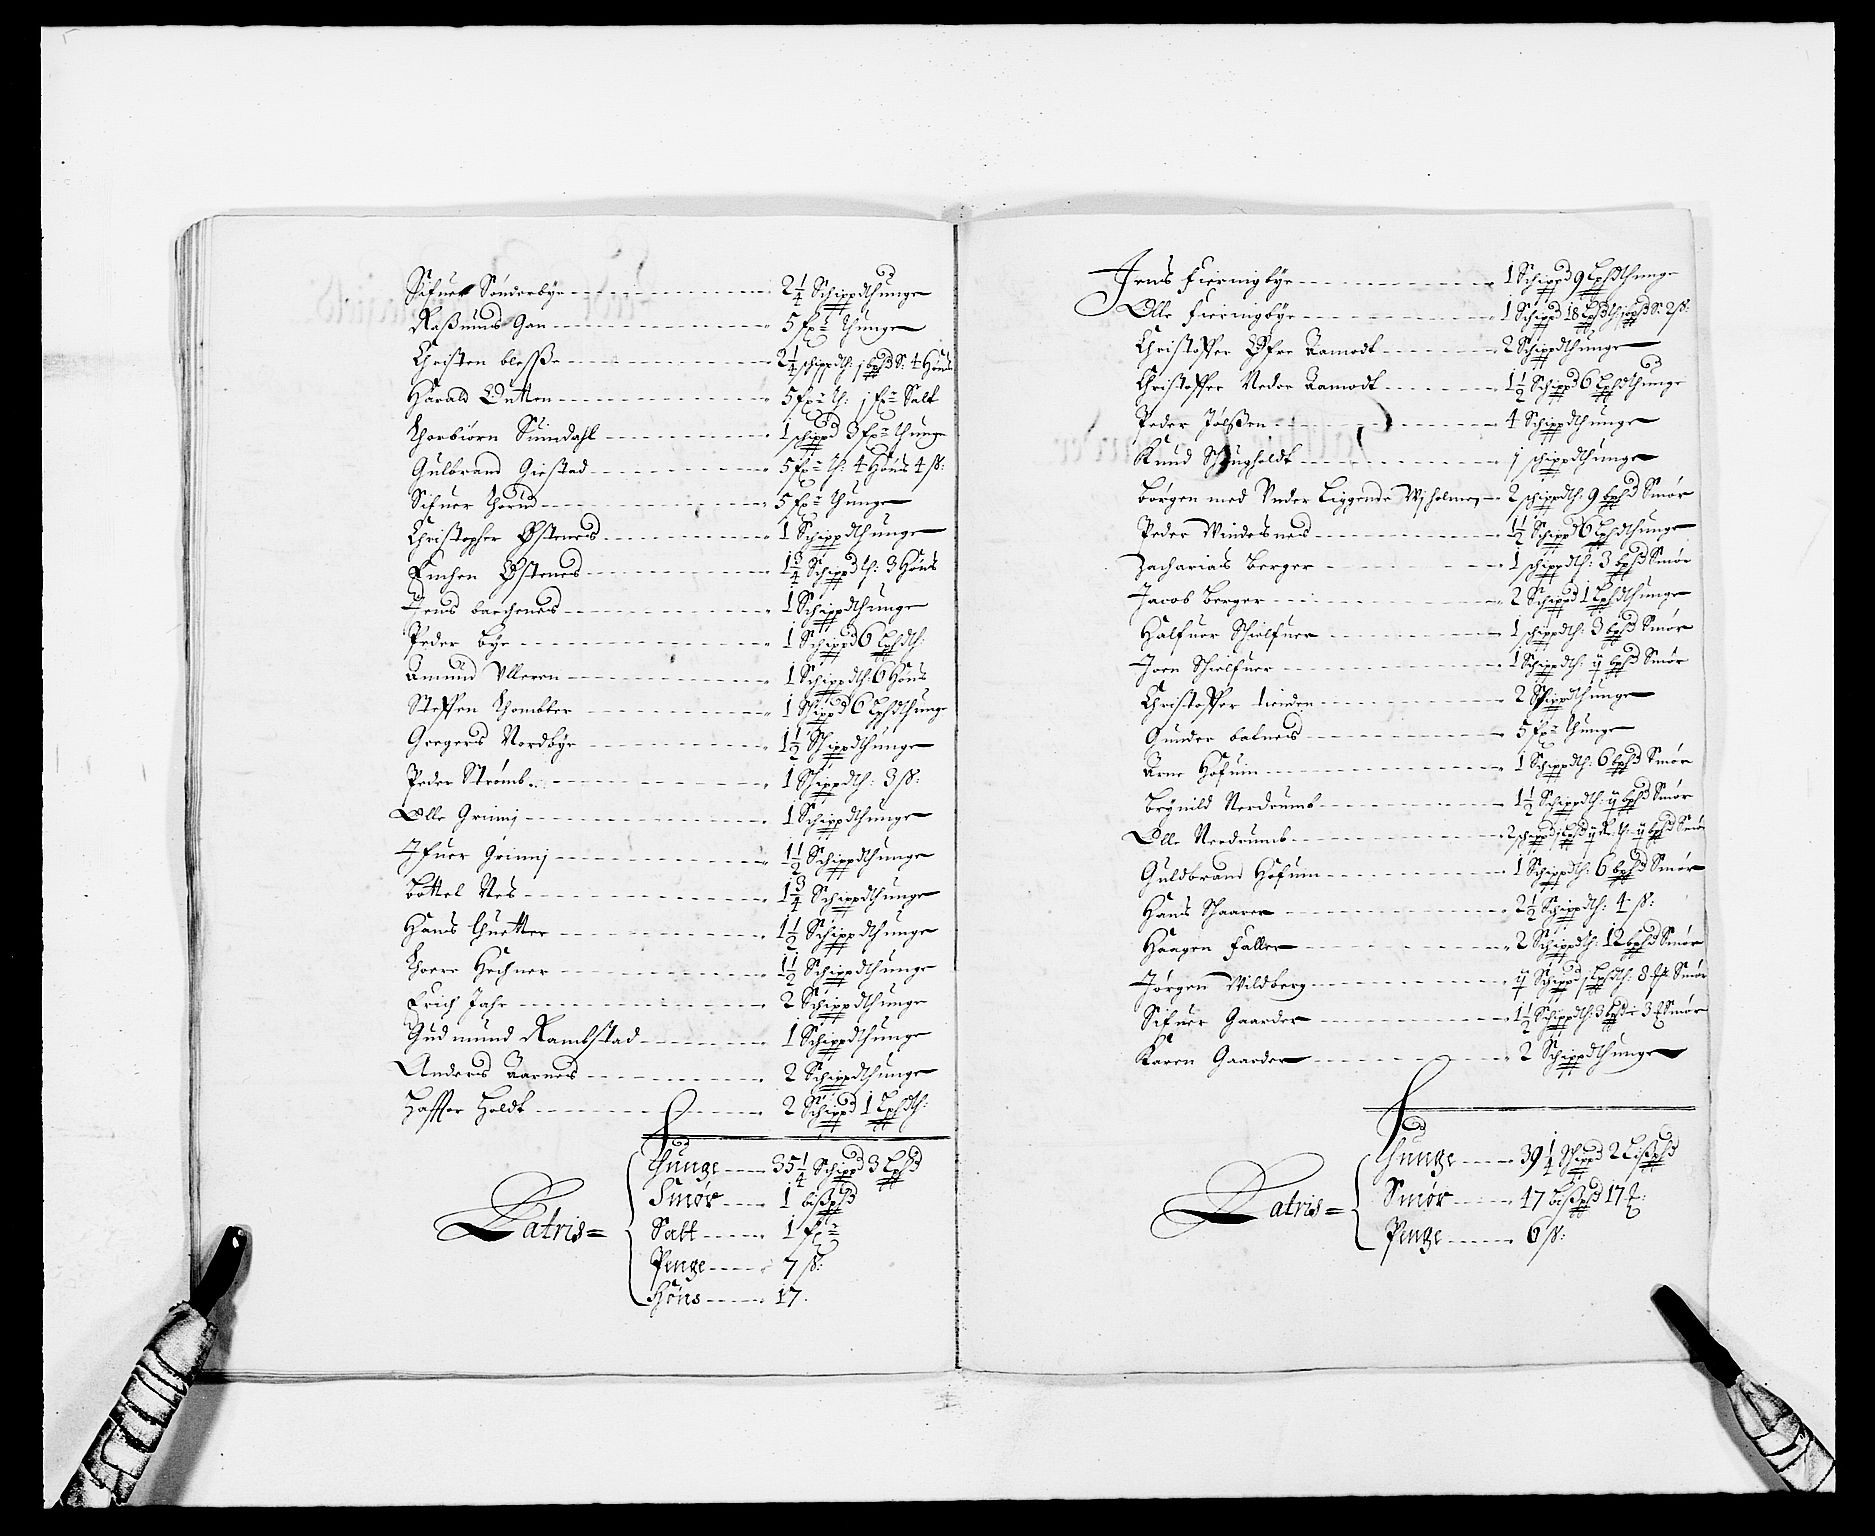 Sifuer Sønderbye 2 1/4 Schippd thunge
Rasmus Gan 5 fx: thunge
Christen 2 1/4 schippd th: j bpd S: 4 Høns
Harald Dutten 5 fx: th: j fx: Salt
Thorbiørn Sundahl 1 schippd 3 fx: thunge
Gulbrand Giestad 5 fx: th: 4 Høns 4 ß:
Sifuer Thorud 5 fx: thunge
Christopher Østenes 1 Schippd thunge
Enchen Østenes 1 3/4 Schippd th: 3 Høns
Jens bachenes 1 Schippd thunge
Peder bye 1 Schippd 6 Lpd th:
Amund Ulleren 1 Schippd th: 6 Høns
Steffen Thombter 1 Schippd 6 Lpd thunge
Gregers Nordbye 1 1/2 Schippd thunge
Peder Strømb 1 Schippd th: 3 ß:
Olle Grimj 1 Schippd thunge
Ifuer Grimj 1 1/2 Schippd thunge
bottel Nes 1 3/4 Schippd thunge
Hans Huetter 1 1/2 Schippd thunge
Thore Hechner 1 1/2 Schippd thunge
Erich Jahr 2 Schippd thunge
Gudmund Rambstad 1 Schippd thunge
Anders Aarnes 2 Schippd thunge
Haffuer Holdt 2 Schippd 1 Lpd th:
Thunge 35 1/4 Schippd 3 Lpd
Smør 1 bißpd
Latris= Salt 1 fx:
Penge 7 ß:
Høns 17.
Jens Fierringbye 1 Schippd 9 Lpd thunge
Olle Fierringbye 1 Schippd 18 Lpd th: j bpd S: 2 ß:
Christoffer Øfre Ramodt 2 Schippd thunge
Christoffer Nedre Ramodt 1 1/2 Schippd 6 Lpd thunge
Peder Jølßen 4 Schippd thunge
Knud Schugholdt j schippd thunge
børgen med Under Liggende Wiholmen 2 schippd th: 9 bpd Smør
Peder Windesnes 1 1/2 Schippd 6 Lpd thunge
Zacharias berger 1 schippd th: 3 bpd Smør
Jacob berger 2 Schippd 1 Lpd thunge
Halfuor Schielfuer 1 schippd th: 3 bpd Smør
Joen Schielfuer 1 Schippd th: ij bpd Smør
Christoffer 2 Schippd thunge
Gunder balnes 5 fx: thunge
Arne Hofuin 1 Schippd th: 6 bpd Smør
brynild Nerdrumb 1 1/2 Schippd th: ij bpd Smør
Olle Nerdrumb 2 schippd j Lpd th: ij bpd Smør
Guldbrand Hofuin 1 Schippd th: 6 bpd Smør
Hans Schaarer 2 1/2 Schippd th: 4 ß:
Haagen Faller 2 Schippd th: 12 bpd Smør
Jørgen Wildberg ij Schippd j Lpd th: 8 Smør
Sifuer Gaarder 1 1/2 Schippd th: 3 bpd 3 Smør
Karen Gaarder 2 Schippd thunge
Thunge 39 1/4 Schippd 2 Lißpd
Latris= Smør 47 bißpd 17
Penge 6 ß: